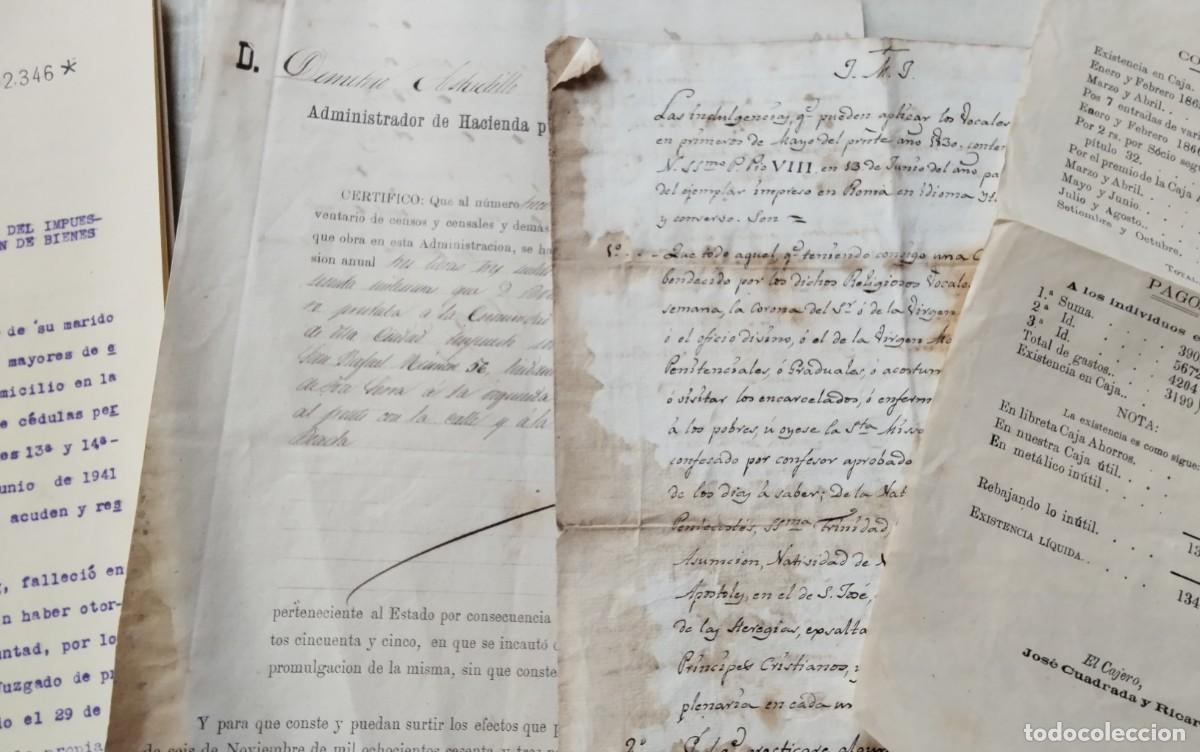 2.346 *
DEL IMPUES-
N DE BIENES
de su marido
mayores de e
micilio en la
e cédulas per
es 13ª y 14ª-
unio de 1941
acuden y reg
, falleció en
n haber otor-
untad, por lo
Juzgado de pr
io el 29 de
propia
D. Demetrio
Administrador de Hacienda p
CERTIFICO: Que al número
ventario de censos y censales y demás
que obra en esta Administracion, se ha
sion anual tres libras tres sueldos
que D.
prestaba á la Comunidad
de esta Ciudad impuesto
San Rafael Número 56,
á la izquierda
al frente con la calle y á la
derecha
perteneciente al Estado por consecuencia
tos cincuenta y cinco, en que se incautó
promulgacion de la misma, sin que conste
Y para que conste y puedan surtir los efectos que p
de seis de Noviembre de mil ochocientos sesenta y tres
J. M. J.
Las indulgencias, qe. pueden aplicar los Vocales
en primeros de Mayo del prnte año 1830, conten
N. SSmo P. Pio VIII, en 13 de Junio del año pa
del ejemplar impreso en Roma en idioma
y conservo. Son =
1º. - Que todo aquel, qe. teniendo consigo una C
bendecida por los dichos Religiosos Vocale
semana, la corona del Sr. ó de la Virgen
ó el oficio divino, ó el de la Virgen
Penitenciales, ó Graduales, ó acostum
ó visitar los encarcelados, ó enferm
á los pobres, u oyese la Sta Missa
confesado por confesor aprobado
de los dias á saber; De la Nat
Pentecostés, SSma Trinidad
Asuncion, Natividad de
Apostoles, en el de S. José,
de las Heregias, exsalta
Principes Cristianos, y
plenaria en cada un
2º practicare algun
CO
Existencia en Caja
Enero y Febrero 186
Marzo y Abril. .
Pos 7 entradas de var
Enero y Febrero 1866
Por 2 rs. por Sócio seg
pítulo 32.
Por el premio de la Caja
Marzo y Abril.
Mayo y Junio.
Julio y Agosto..
Setiembre y Octubre.
TOTAL
PAGO
A los individuos e
1.ª Suma. 390
2.ª Id. 5672
3.ª Id. 4204
Total de gastos. . 3199
Existencia en Caja. .
NOTA:
La existencia es como sigue:
En libreta Caja Ahorros.
En nuestra Caja útil.
En metálico inútil
Rebajando lo inútil. 13
EXISTENCIA LÍQUIDA. 134
El Cajero,
José Cuadrada y Ricar
todocoleccion